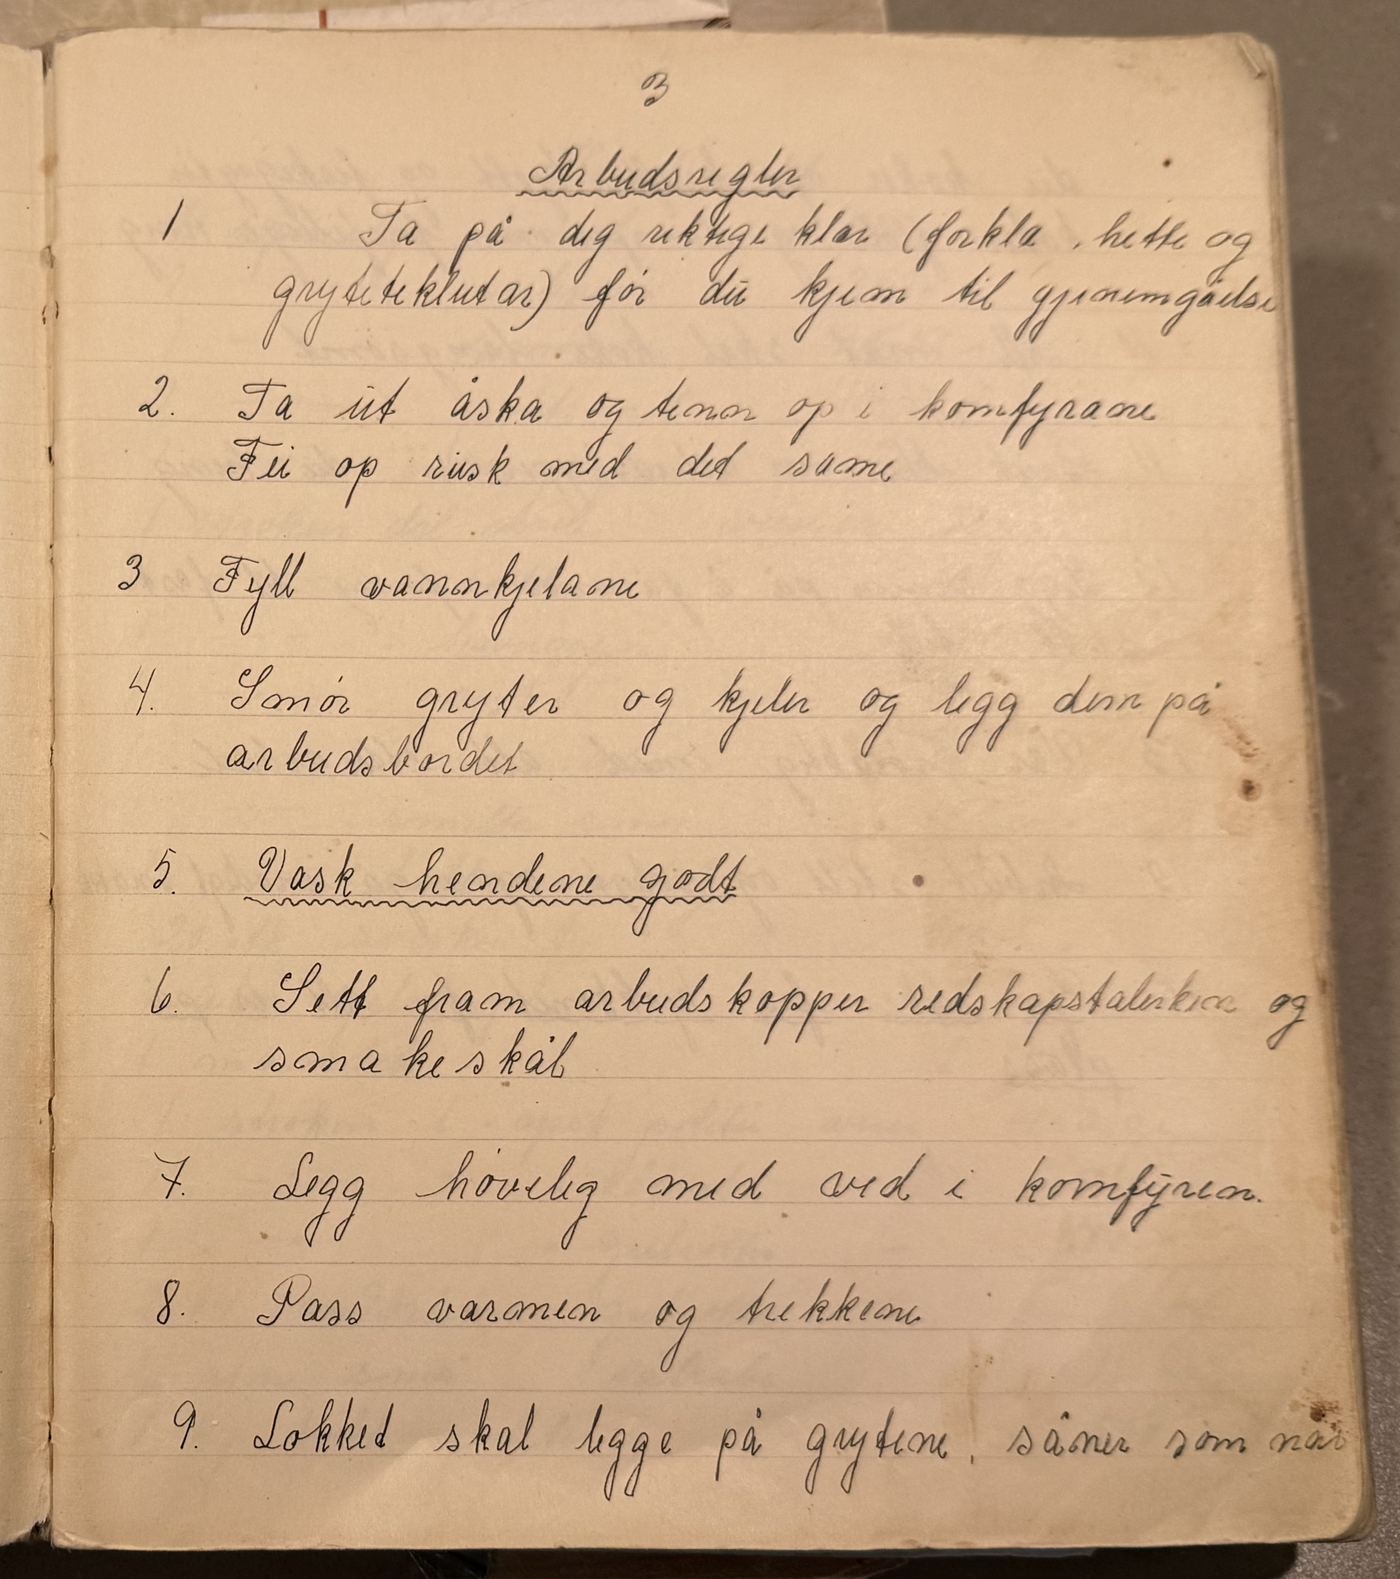 3
Arbeidsregler
1 Ta på deg rektige klær (forkla, hette og
gryteteklutar) før du kjem til gjenemgåelse
2. Ta ut åska og tenn op i komfyrane
Fei op rusk med det same
3 Fyll vannkjelane
4. Smør gryter og kjeler og legg dem på
arbeidsbordet
5. Vask hendene godt
6. Sett fram arbeidskopper redskapstalerken og
smakeskål
7. Legg høvelig med ved i komfyren.
8. Pass varmen og trekkene
9. Lokket skal legge på grytene, såner som når